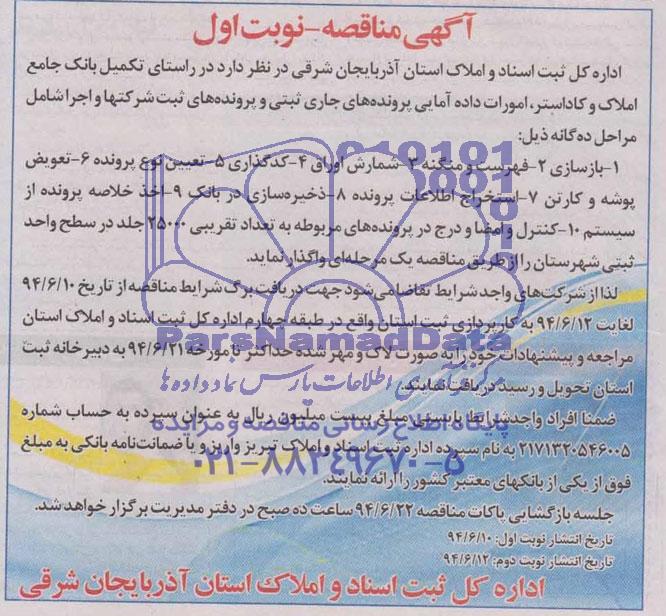 آگهی مناقصه-نوبت اول
اداره کل ثبت اسناد و املاک استان آذربایجان شرقی در نظر دارد در راستای تکمیل بانک جامع
املاک و کاداستر، امورات داده آمایی پرونده‌های جاری ثبتی و پرونده‌های ثبت شرکتها و اجرا شامل
مراحل ده‌گانه ذیل:
۱-بازسازی ۲-فهرست و منگنه ۳-شمارش اوراق ۴-کدگذاری ۵-تعیین نوع پرونده ۶-تعویض
پوشه و کارتن ۷-استخراج اطلاعات پرونده ۸-ذخیره‌سازی در بانک ۹-اخذ خلاصه پرونده از
سیستم ۱۰-کنترل و امضا و درج در پرونده‌های مربوطه به تعداد تقریبی ۲۵۰۰۰ جلد در سطح واحد
ثبتی شهرستان را از طریق مناقصه یک مرحله‌ای واگذار نماید.
لذا از شرکت‌های واجد شرایط تقاضا می‌شود جهت دریافت برگ شرایط مناقصه از تاریخ ۹۴/۶/۱۰
لغایت ۹۴/۶/۱۲ به کارپردازی ثبت استان واقع در طبقه چهارم اداره کل ثبت اسناد و املاک استان
مراجعه و پیشنهادات خود را به صورت لاک و مهر شده حداکثر تا مورخه ۹۴/۶/۲۱ به دبیرخانه ثبت
استان تحویل و رسید دریافت نمایند.
ضمنا افراد واجد شرایط بایستی مبلغ بیست میلیون ریال به عنوان سپرده به حساب شماره
۲۱۷۱۳۲۰۵۴۶۰۰۵ به نام سپرده اداره ثبت اسناد و املاک تبریز واریز و یا ضمانت‌نامه بانکی به مبلغ
فوق از یکی از بانکهای معتبر کشور را ارائه نمایند.
جلسه بازگشایی پاکات مناقصه ۹۴/۶/۲۲ ساعت ده صبح در دفتر مدیریت برگزار خواهد شد.
تاریخ انتشار نوبت اول: ۹۴/۶/۱۰
تاریخ انتشار نوبت دوم: ۹۴/۶/۱۲
اداره کل ثبت اسناد و املاک استان آذربایجان شرقی
ParsNamadData
پایگاه اطلاع رسانی مناقصه و مزایده
۰۲۱-۸۸۳۴۹۶۷۰-۵